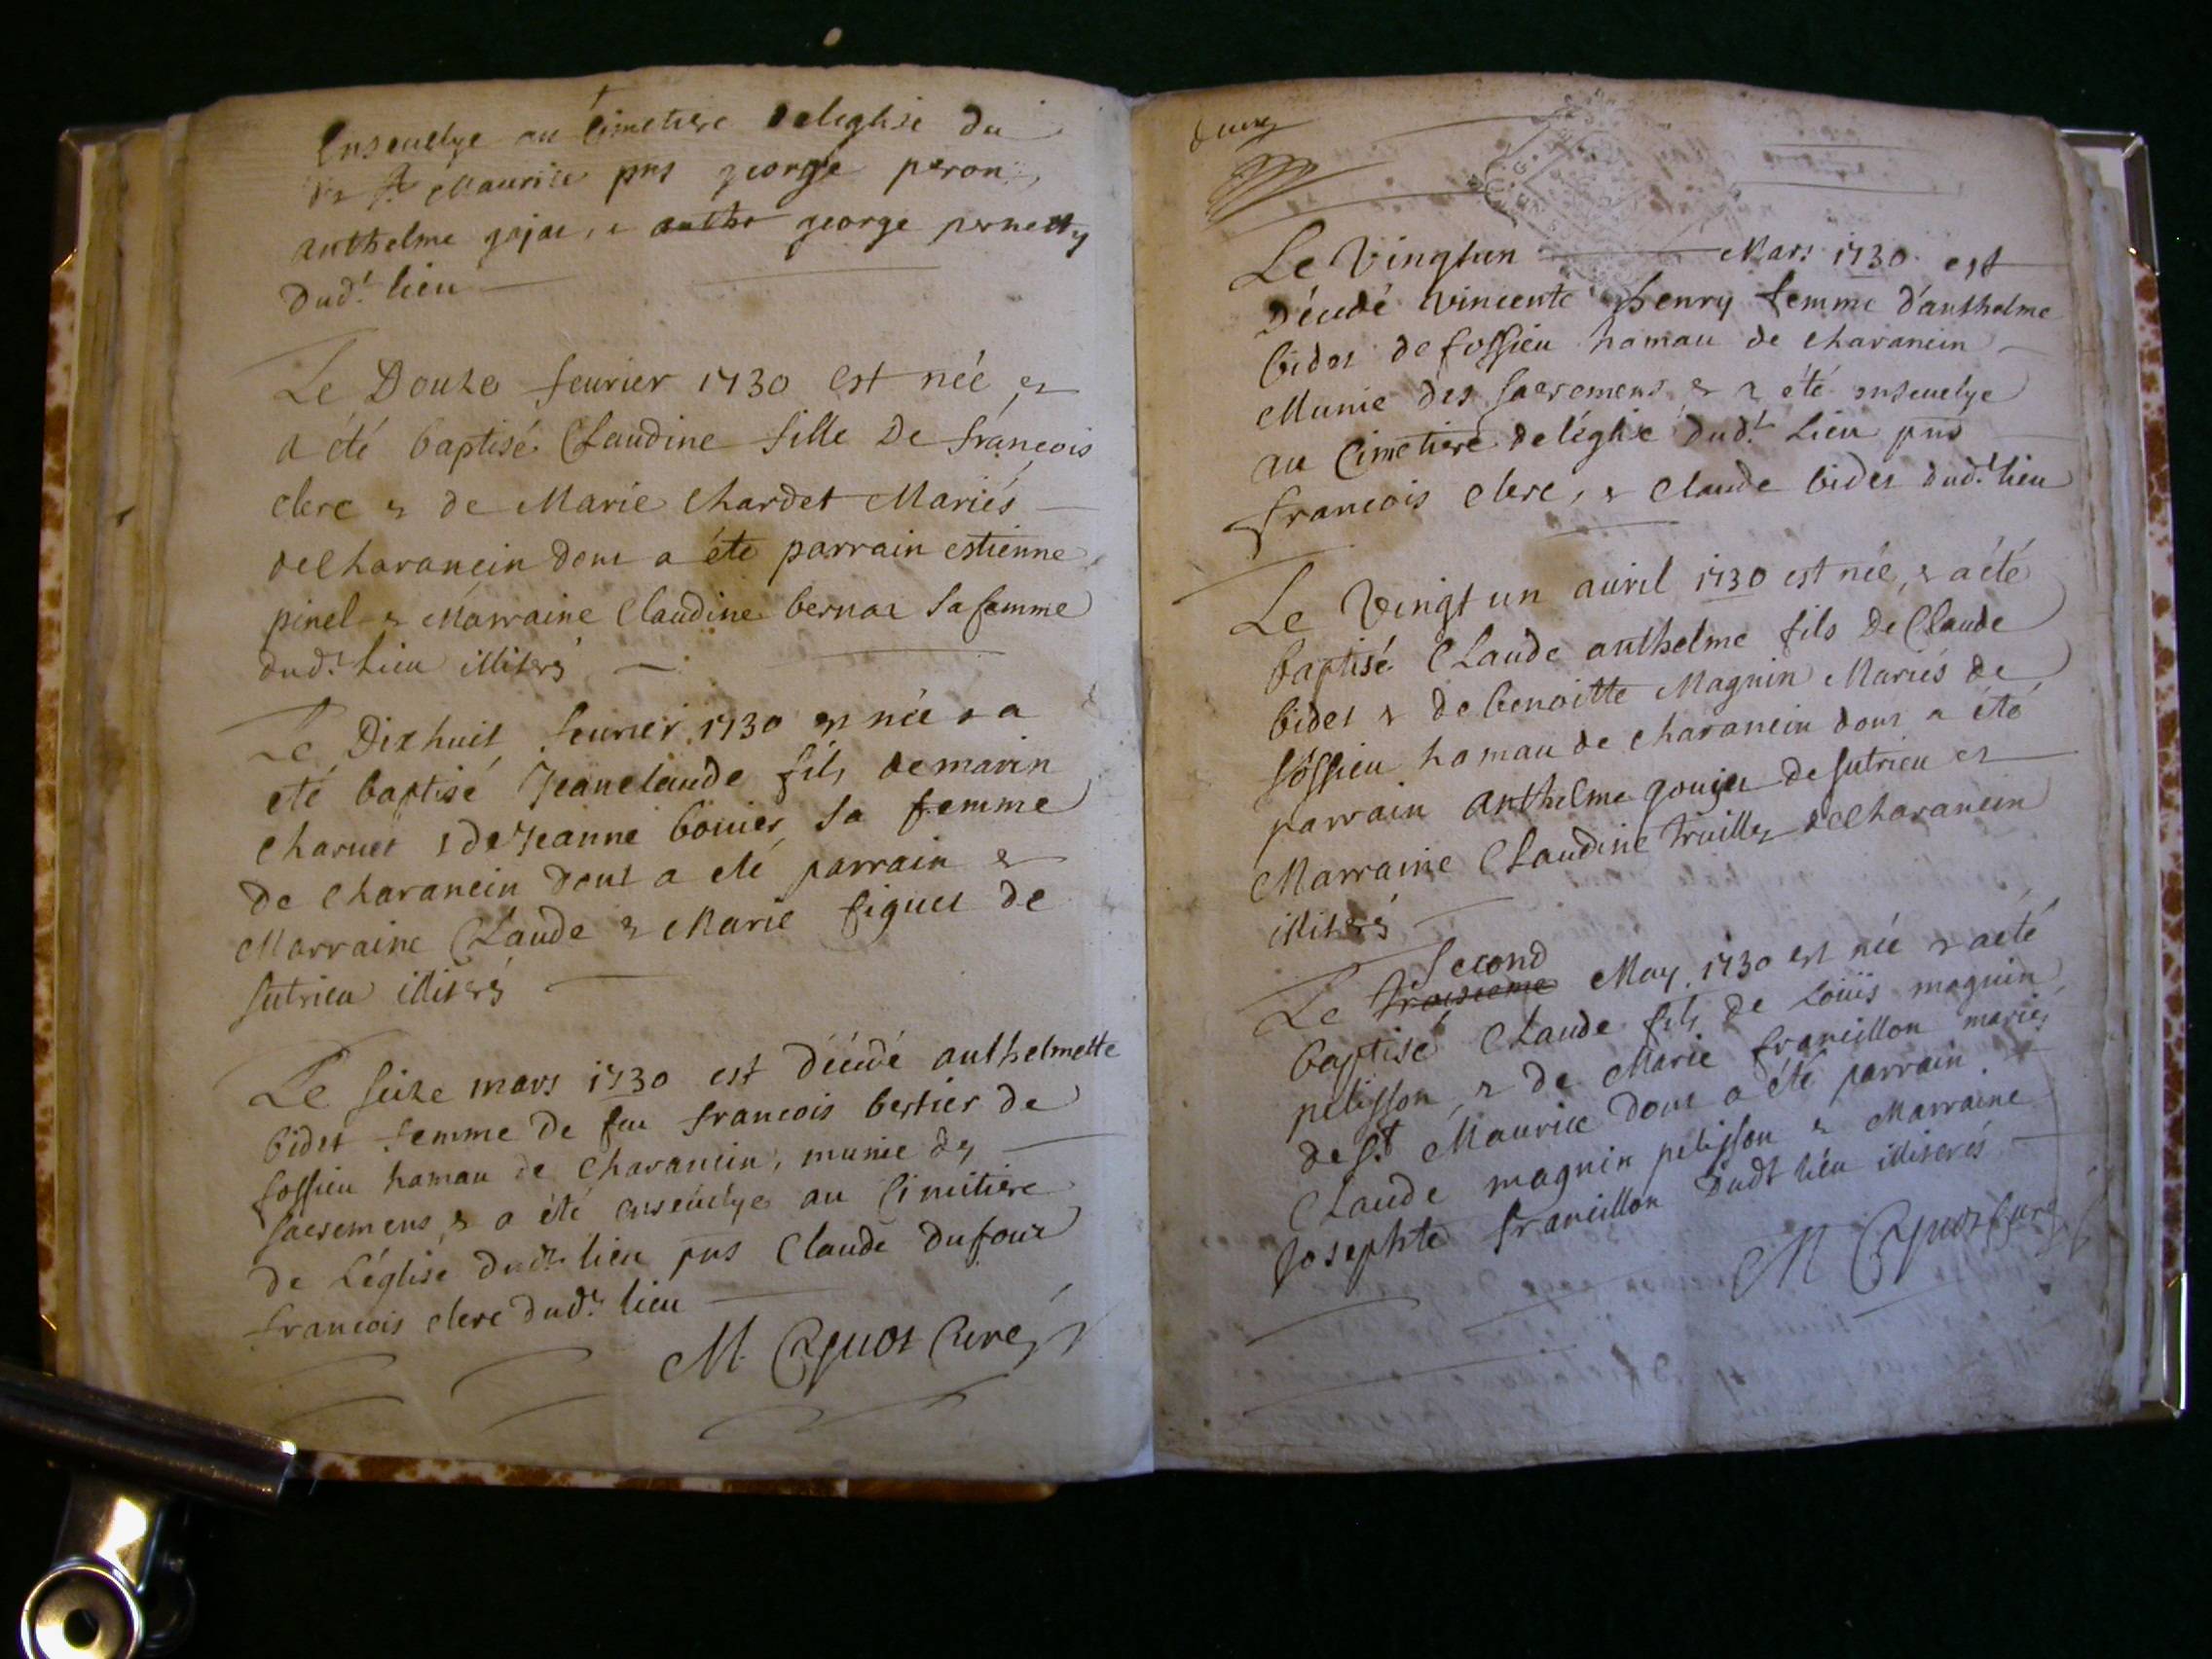 Ensevelye au Cimetiere deleglise du
St Maurice pns george peron,
anthelme gojac, & antho george pernetty
Dud.t lieu
Le Douze fevrier 1730 est née et
a été baptisé Claudine fille De françois
clerc & de Marie Chardet Mariés
deCharancin dont a été parrain estienne
pinel & Marraine Claudine bernar sa femme
dud.t lieu illiterés
Le Dixhuit fevrier 1730 est née & a
eté baptisé Jeanclaude fils de marin
Charvet & deJeanne bovier sa femme
De Charancin dont a eté parrain &
Marraine Claude & Marie figuet de
sutrieu illiterés
Le seize mars 1730 est décédé anthelmette
bidet femme de feu francois bertier de
fossieu hamau de Charancin, munie des
sacremens, & a été ensevelye au Cimitiere
de L'église dud.t lieu pns Claude dufour
francois clerc dud.t lieu
M. Cyvot Curé
Curé
Le Vingtun Mars 1730 est
Décédé Vincente henry femme d'anthelme
bidet de fossieu hamau de charancin
Munie des sacremens & a été ensevelye
au Cimetiere deléglise dud.t Lieu pns
francois clerc, & Claude bidet dud.t lieu
Le Vingt un avril 1730 est née, & a été
baptisé CLaude anthelme fils De Claude
bidet & de benoitte Magnin Mariés de
fossieu hamau de charancin dont a été
parrain anthelme goujet de sutrieu et
Marraine CLaudine truillet deCharancin
illiterés
second
Le troisieme May 1730 est née & a eté
baptisé CLaude fils de Loüis magnin
pelisson, & de Marie francillon mariés
de S.t Maurice dont a été parrain
CLaude magnin pelisson & Marraine
Josephte francillon Dudt lieu illiterés
M Cyvot Curé